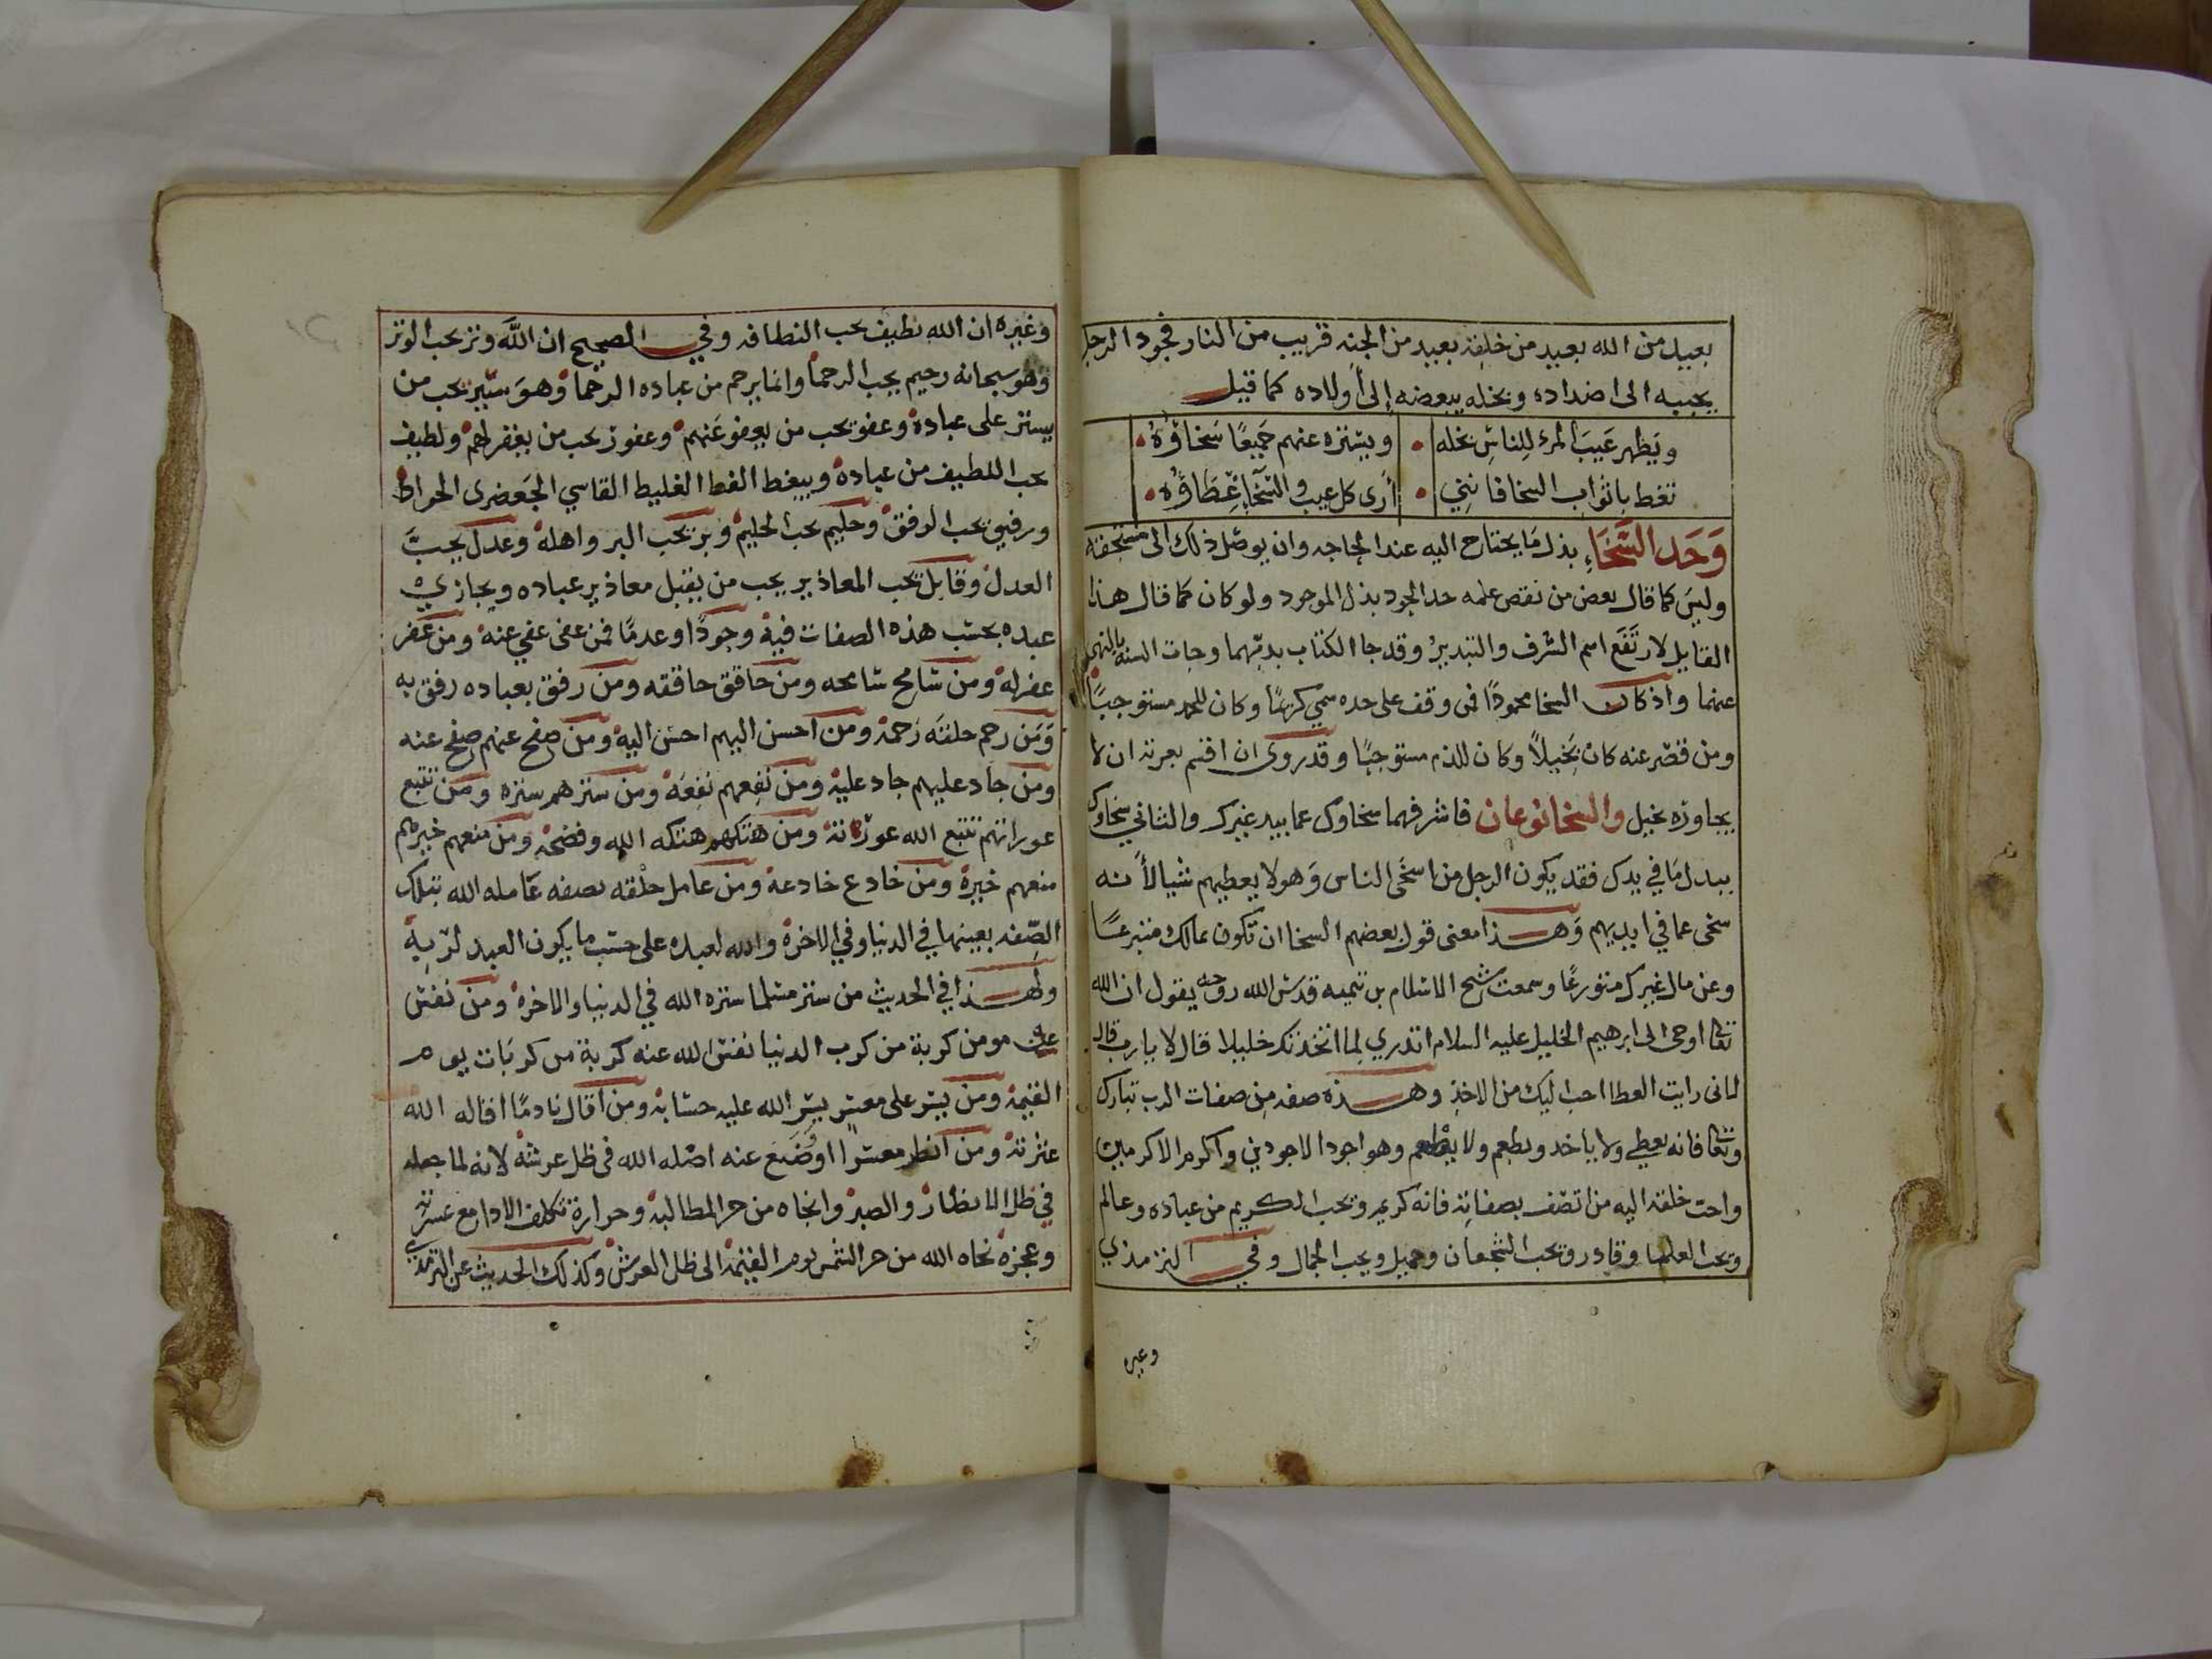 بعيد من الله بعيد من خلقه بعيد من الجنه قريب من النار فجود الرجل
يحببه الى اضداده وبخله يبغضه إلى أولاده كما قيل
ويَظهر عَيبَ المرء لِلناسِ بخله • ويستره عنهم جَميعًا سَخاؤُهُ •
تغط باثواب السخا فانني • أرى كل عيب والسَّخَاءُ غِطَاؤُه •
وَحَد السَّخَاءِ بذل مَا يحتاج اليه عند الحاجه وان يوصَل ذلك الى مستحقه
وليسَ كما قال بعض من نقص علمه حد الجود بذل الموجود ولو كان كما قال هذا
القايل لارتَفَع اسم السرف والتبذيرُ وقد جا الكتاب بذمهما وجات السنة بالنهي
عنهما واذ كان السخا محمودًا فمن وقف على حده سمي كريمًا وكان للحمد مستوجبًا
ومن قصر عنه كان بَخيلاً وكان للذم مستوجبًا وقد روى ان اقسم بعزته ان لا
يجاوره بخيل والسخا نوعان فاشرفهما سخاوك عما بيد غيرك والثاني سخاوك
ببدل مَا في يدك فقد يكون الرجل من اسخَى الناس وَهو لا يعطيهم شيا لأنه
سخى عما في ايديهم وَهذا معنى قول بعضهم السخا ان تكون بمالك متبرعًا
وعن مال غيرك متورعًا وسمعت شيخ الاسْلام بن تيميه قدسَ الله روحه يقول ان الله
تعالى اوحى الى ابرهيم الخليل عليه السلام اتدري لما اتخذتك خليلا قال لا يارب قال
لانى رايت العطا احب اليك من الاخذ وهذه صفه مِن صفات الرب تبارك
وتعالى فانه يعطي ولا ياخد ويطعم ولا يطعم وهو اجود الاجودين واكرم الاكرمين
واحب خلقه اليه من اتصَف بصفاته فانه كريم وتحب الكريم من عباده وعالم
وتحب العلما وقادر وتحب الشجعان وجميل ويحب الجمال وفي الترمذي
وغيره
وغيره ان الله نظيف يحب النظافه وفي الصحيح ان اللَّه وتر يحب الوتر
وهو سبحانه رحيم يحب الرحما وانما يرحم من عباده الرحما وهوَ ستير يحب من
يستر على عباده وعفو يحب من يعفو عَنهم وغفور يحب من يغفر لهم ولطيف
يحب اللطيف من عباده ويبغط الفظ الغليط القاسي الجَعضرى الجواظ
ورفيق يحب الرفق وحليم يحب الحليم وبر يحب البر واهله وعدل يحبّ
العدل وقابل يحب المعاذير يحب من يقبل معاذير عباده ويجازي
عبده بحسْب هذه الصفات فيه وجودًا وعدمًا فمن عفى عفي عنه ومن غفر
غفر له ومن سَامح سَامحه ومن حاقق حاققه ومن رفق بعباده رفق به
وَمَن رحم خلقه رَحمه ومن احسن اليهم احسَن اليه ومن صفح عنهم صفح عنه
ومن جاد عليهم جاد عليه ومن نَفعهم نفعَه ومن سترهم ستره ومن تتبع
عوراتهم تتبع الله عورَاته ومن هتكهم هتكه الله وفضحه ومن منعهم خيرهم
منعهم خيره ومن خادع خادعه ومن عامل خلقه بصفه عَامله الله بتلك
الصِّفه بعينها في الدنيا وفي الاخره والله لعبده على حسَب ما يكون العبد لربِه
ولهذا في الحديث من ستر مسلما ستره الله في الدنيا والاخره ومن نفسَ
عن مومن كربة من كرب الدنيا نفسَ الله عنه كربة من كربَات يوم
القيمه ومن يسَر على معسر يسَر الله عليه حسَابه ومن اقال نادمًا اقاله الله
عثرته ومن انظر معسرا اوضَع عنه اصله الله في ظل عرشه لانه لما جعله
في ظل الانظار والصبر وانجاه من حر المطالبه وحرارة تكلف الادا مع عسرته
وعجزه نجاه الله من حر الشمس يوم القيمة الى ظل العرش وكذلك الحديث عن الترمذي